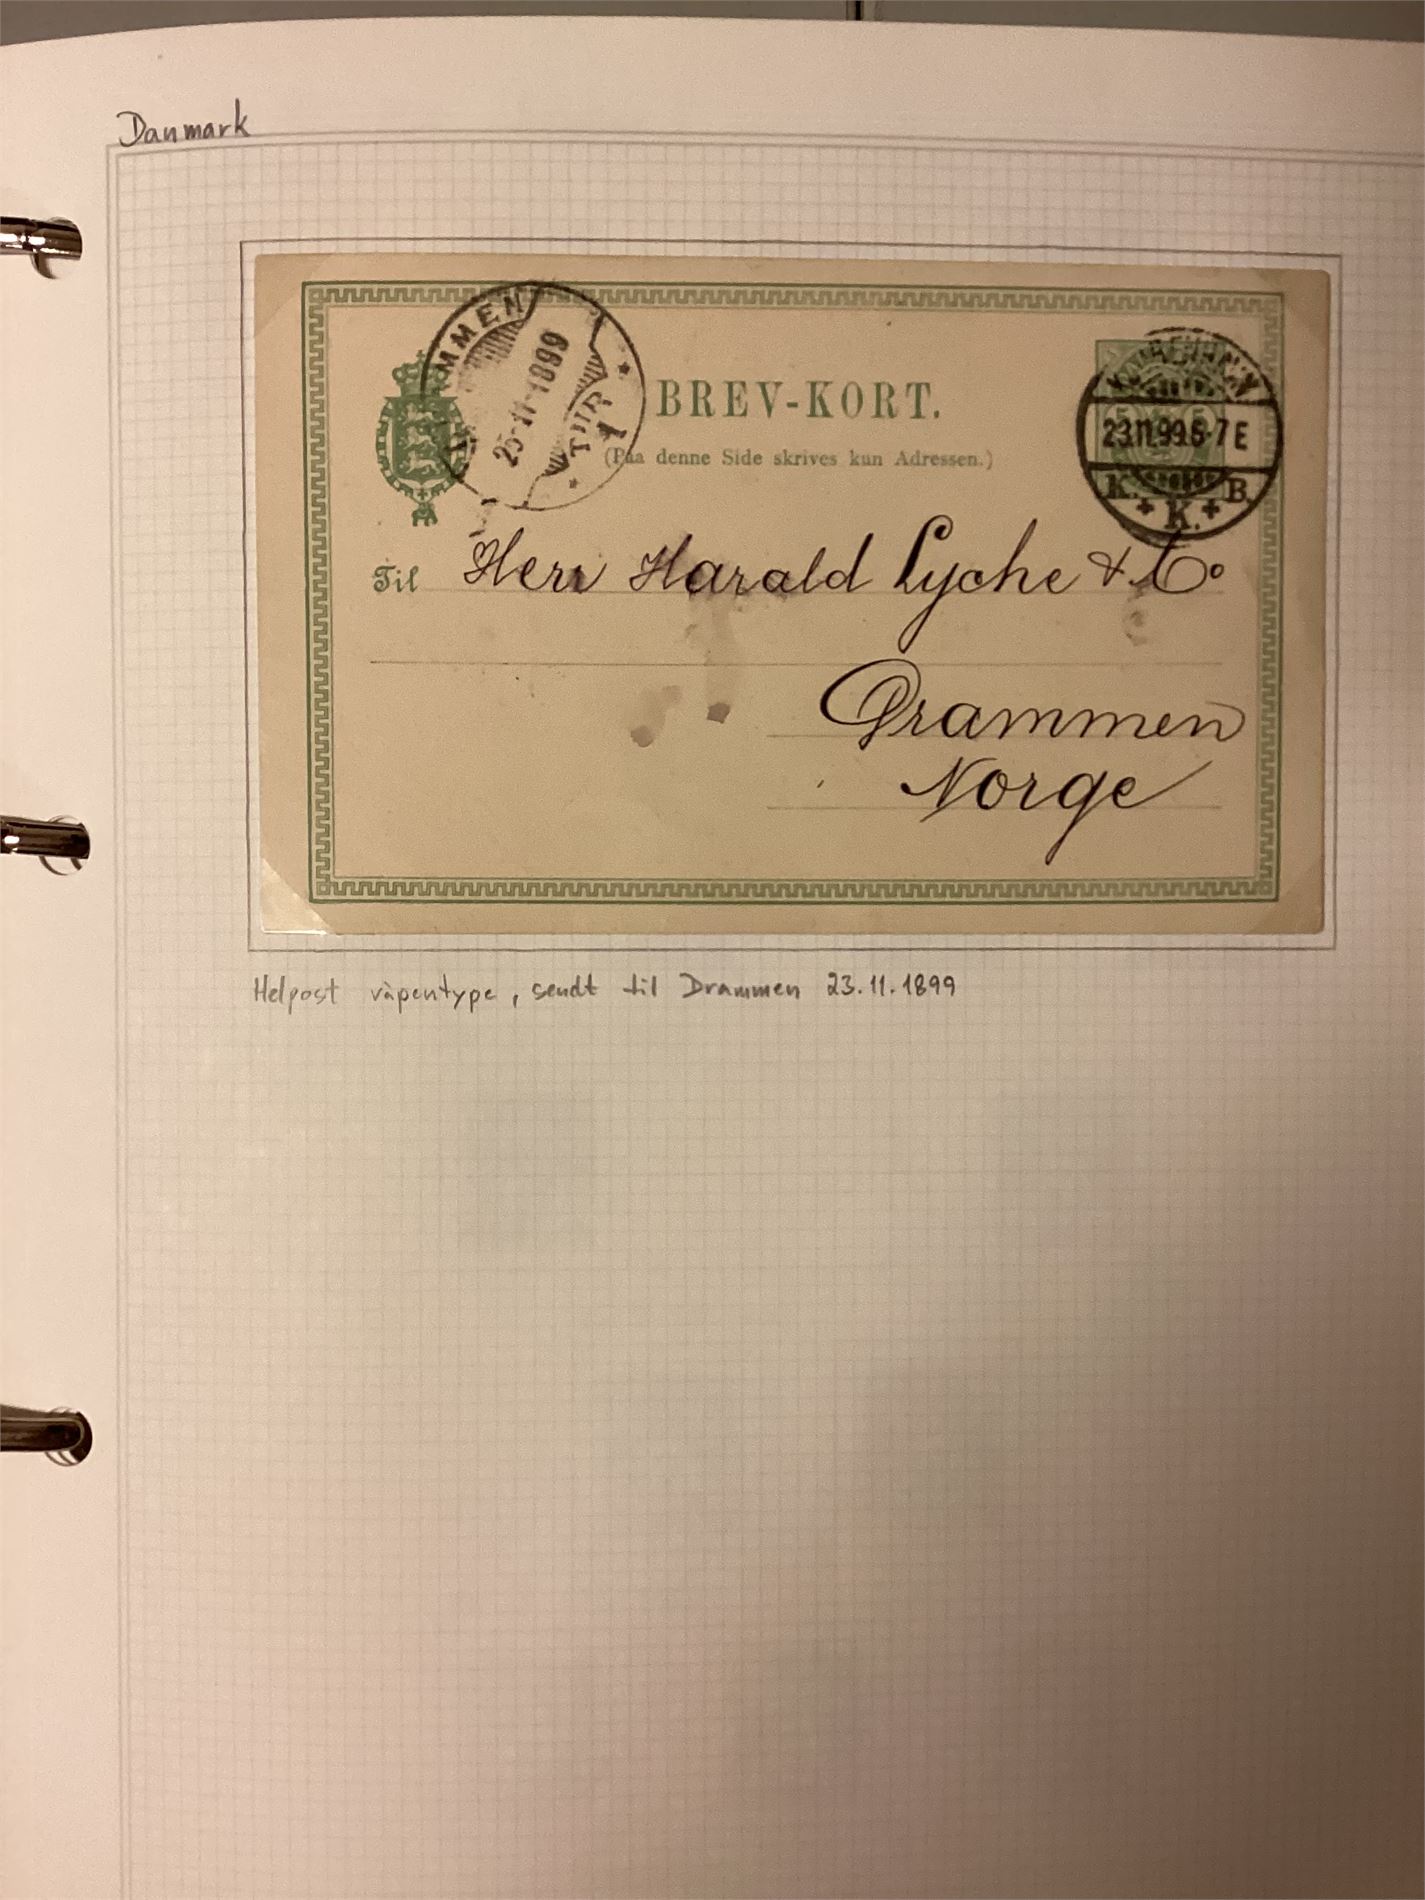 Danmark
MMEN
25-11-1899
TUR 1
BREV-KORT.
(Paa denne Side skrives kun Adressen.)
5 5
23.11.99.6-7 E
K. K. B.
Til Herr Harald Lyche & Co
Drammen
Norge
Helpost våpentype, sendt til Drammen 23.11.1899